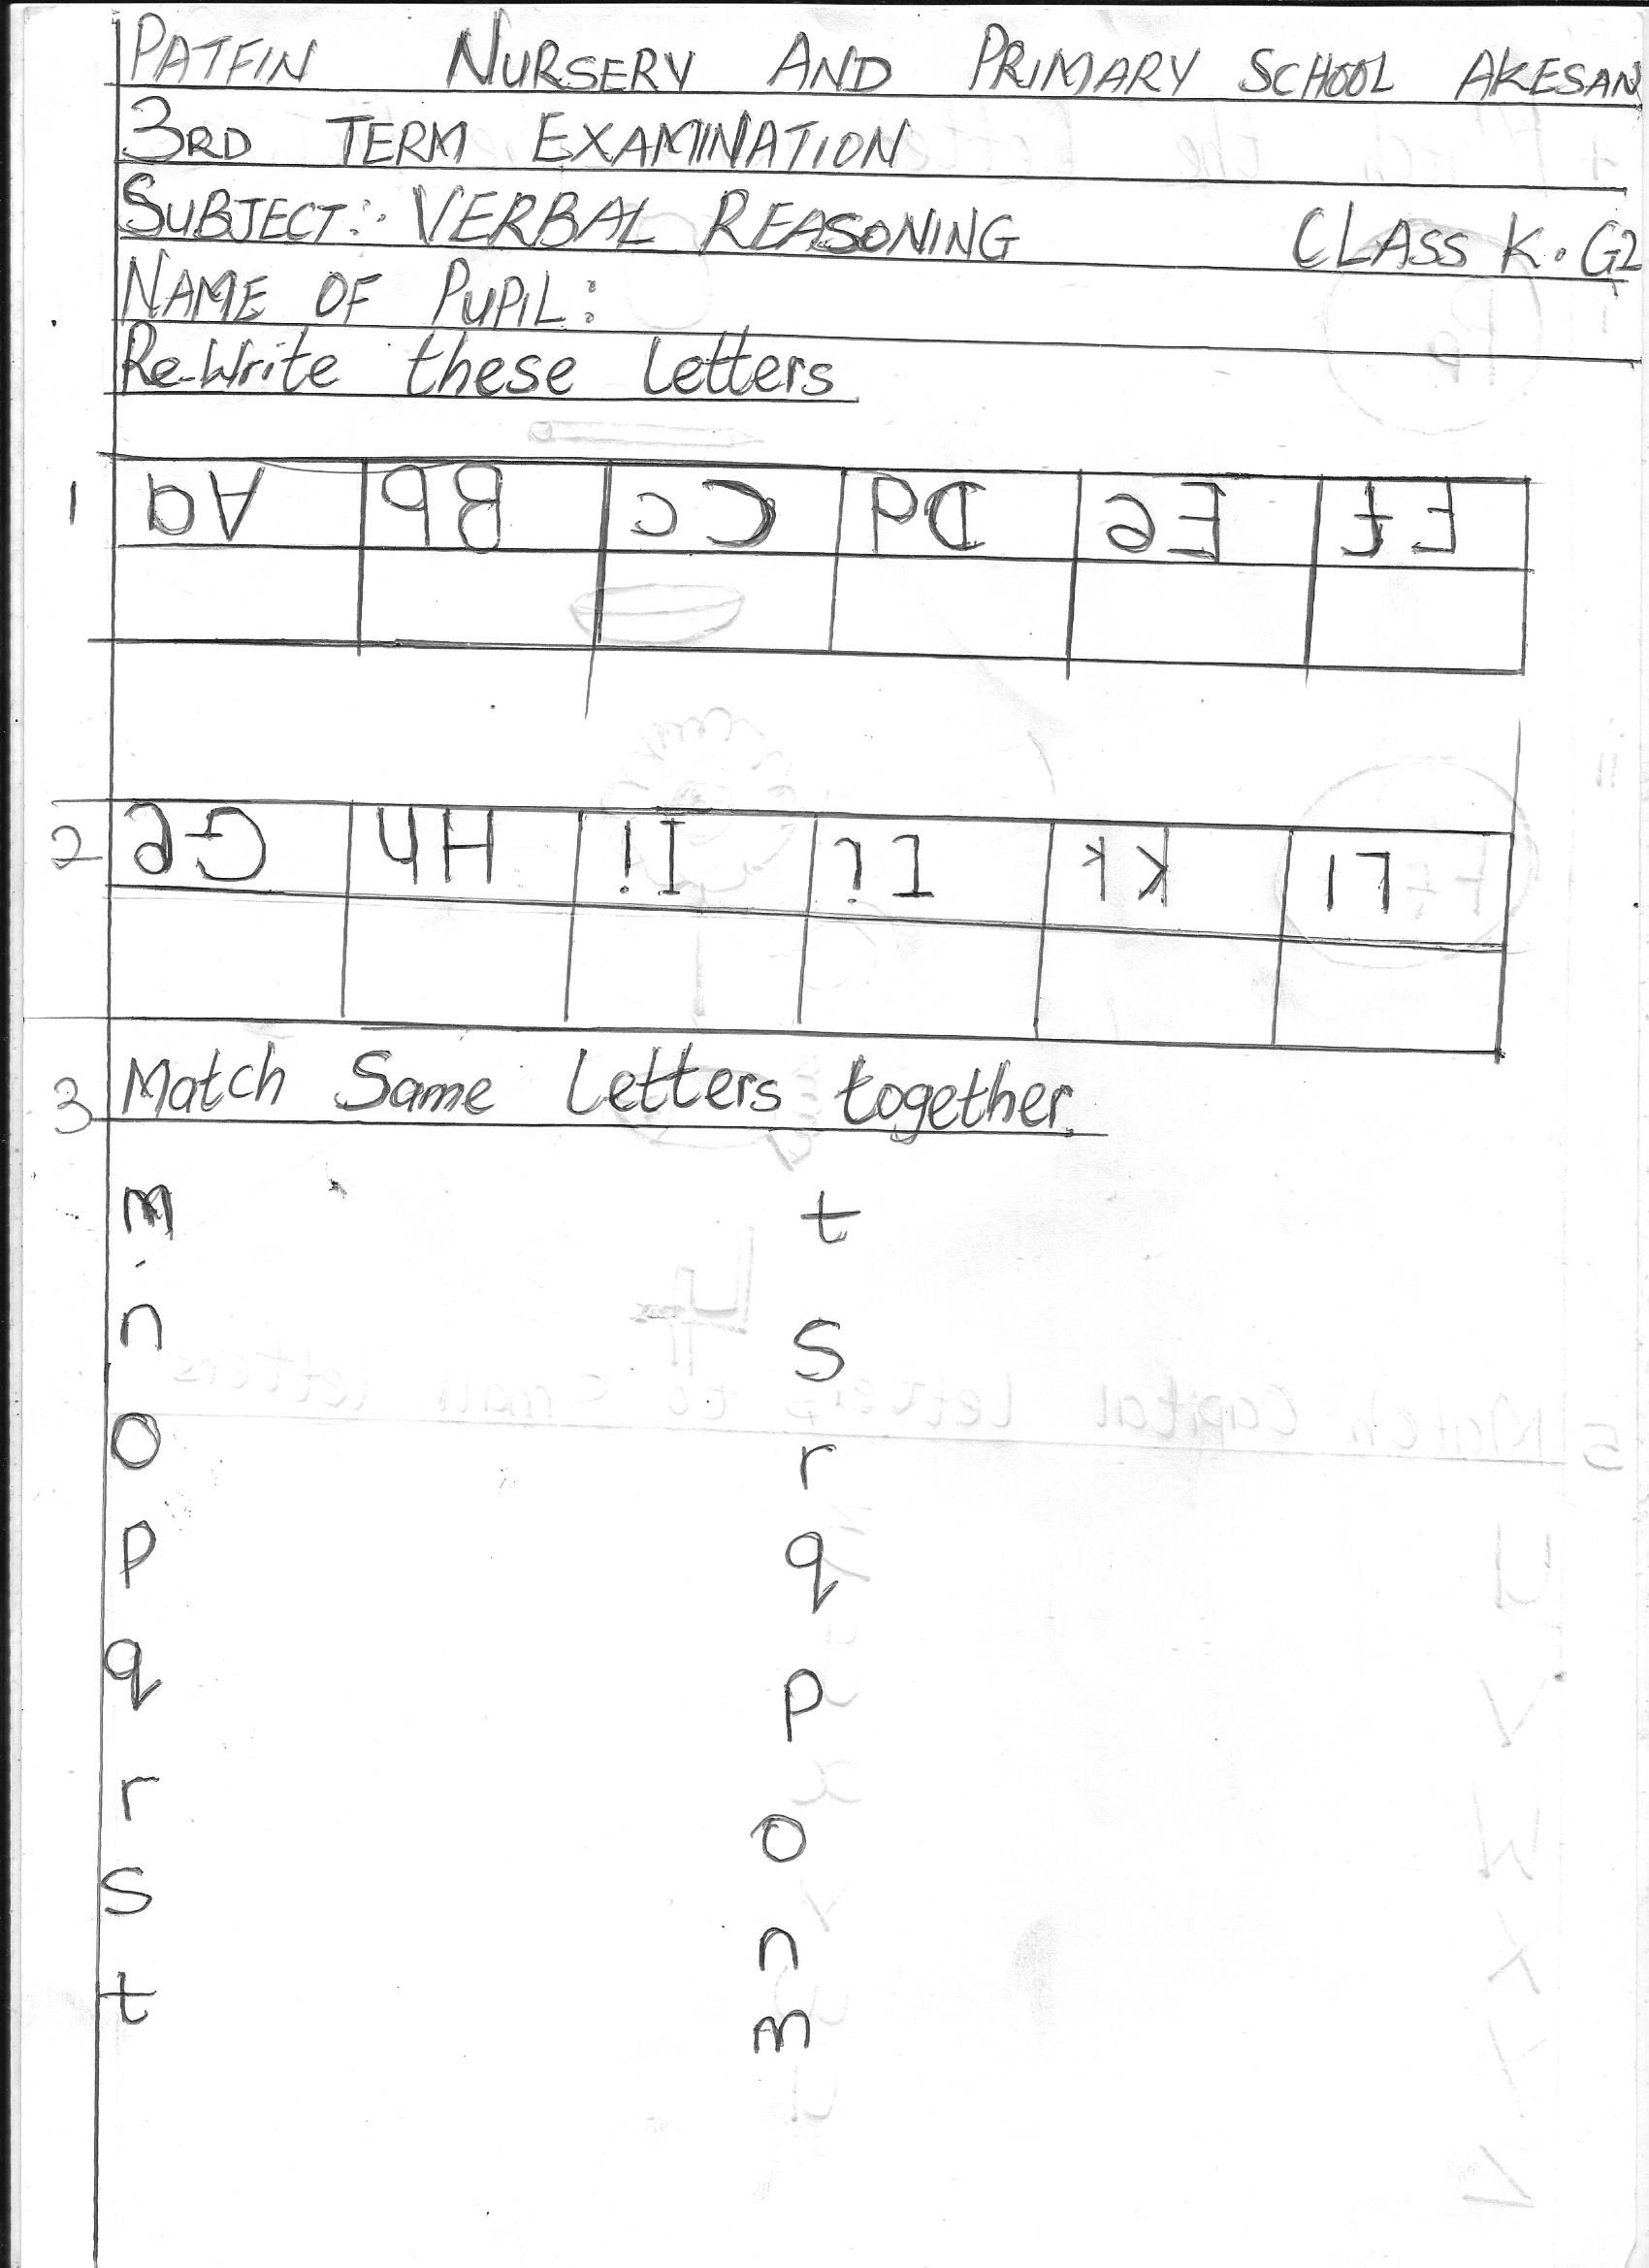 PATFIN NURSERY AND PRIMARY SCHOOL AKESAN
3RD TERM EXAMINATION
SUBJECT:- VERBAL REASONING CLASS K.G2
NAME OF PUPIL:
Re-Write these Letters
1 Aa Bb Cc Dd Ee Ff
2 Ge Hh Ii Kk Ll
3 Match Same Letters together.
m t
n s
o r
p q
q p
r o
s n
t m